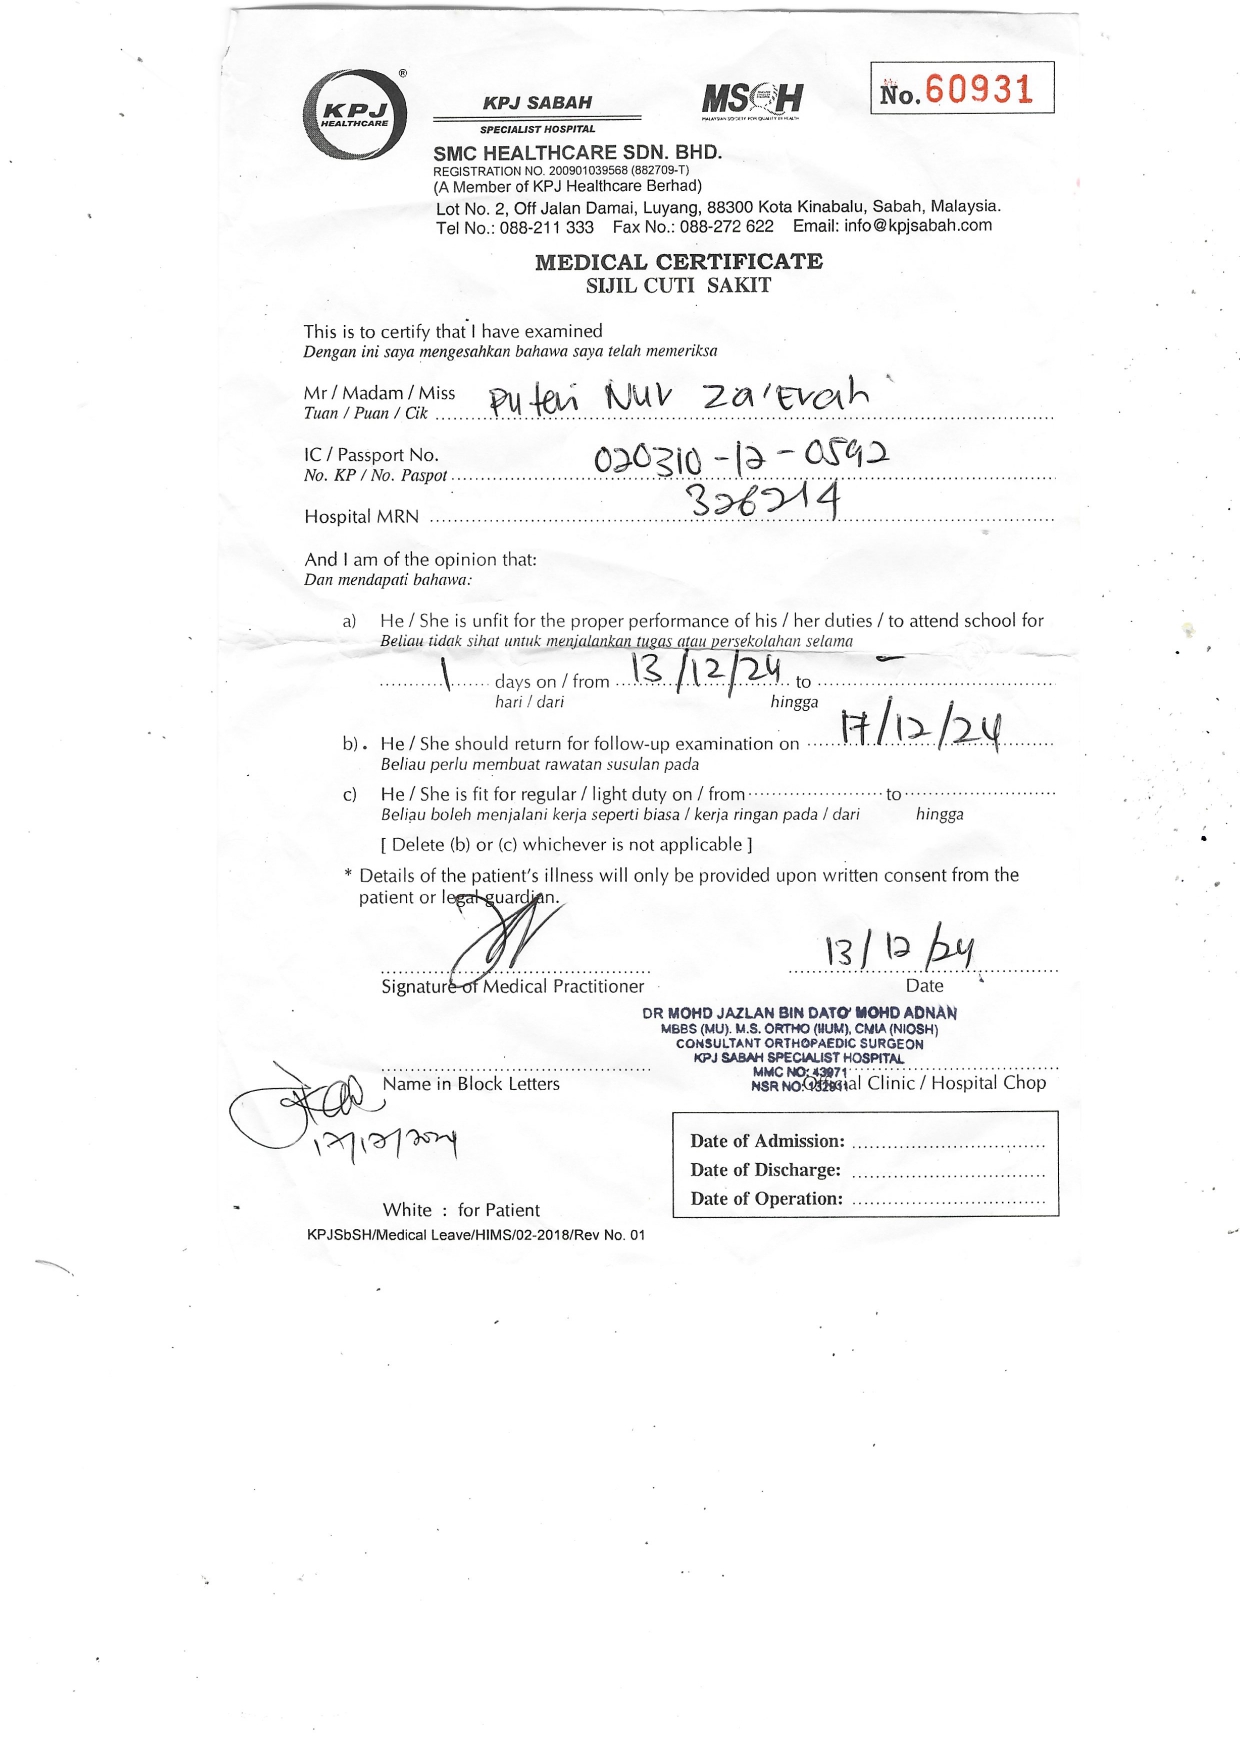 KPJ
HEALTHCARE
®
KPJ SABAH
SPECIALIST HOSPITAL
MSQH
MALAYSIAN SOCIETY FOR QUALITY IN HEALTH
No. 60931
SMC HEALTHCARE SDN. BHD.
REGISTRATION NO. 200901039568 (882709-T)
(A Member of KPJ Healthcare Berhad)
Lot No. 2, Off Jalan Damai, Luyang, 88300 Kota Kinabalu, Sabah, Malaysia.
Tel No.: 088-211 333 Fax No.: 088-272 622 Email: info@kpjsabah.com
MEDICAL CERTIFICATE
SIJIL CUTI SAKIT
This is to certify that I have examined
Dengan ini saya mengesahkan bahawa saya telah memeriksa
Mr / Madam / Miss Puteri Nur Za'Erah
Tuan / Puan / Cik
IC / Passport No. 020310-12-0592
No. KP / No. Paspot
Hospital MRN 326214
And I am of the opinion that:
Dan mendapati bahawa:
a) He / She is unfit for the proper performance of his / her duties / to attend school for
Beliau tidak sihat untuk menjalankan tugas atau persekolahan selama
1 days on / from 13/12/24 to -
hari / dari hingga
b). He / She should return for follow-up examination on 17/12/24
Beliau perlu membuat rawatan susulan pada
c) He / She is fit for regular / light duty on / from to
Beliau boleh menjalani kerja seperti biasa / kerja ringan pada / dari hingga
[ Delete (b) or (c) whichever is not applicable ]
* Details of the patient's illness will only be provided upon written consent from the
patient or legal guardian.
13/12/24
Signature of Medical Practitioner Date
DR MOHD JAZLAN BIN DATO' MOHD ADNAN
MBBS (MU). M.S. ORTHO (IIUM), CMIA (NIOSH)
CONSULTANT ORTHOPAEDIC SURGEON
KPJ SABAH SPECIALIST HOSPITAL
MMC NO: 43971
NSR NO:
Name in Block Letters Official Clinic / Hospital Chop
17/12/2024
Date of Admission:
Date of Discharge:
Date of Operation:
White : for Patient
KPJSbSH/Medical Leave/HIMS/02-2018/Rev No. 01